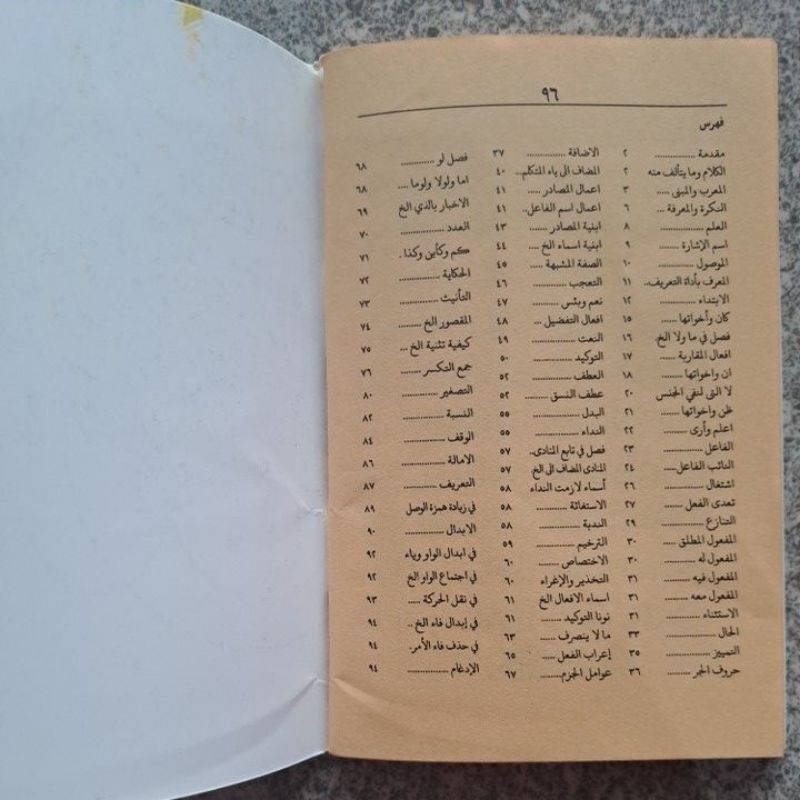 ٩٦
فهرس
مقدمة .............. ٢
الكلام وما يتألف منه ٢
المعرب والمبنى ..... ٣
النكرة والمعرفة ... ٦
العلم .............. ٨
اسم الإشارة ...... ٩
الموصول .......... ١٠
المعرف بأداة التعريف.. ١١
الابتداء ........... ١٢
كان وأخواتها ...... ١٥
فصل في ما ولا الخ. ١٦
افعال المقاربة ...... ١٧
ان واخواتها ....... ١٨
لا التى لنفي الجنس ٢٠
ظن واخواتها ...... ٢١
اعلم وأرى ........ ٢٢
الفاعل ............. ٢٣
النائب الفاعل..... ٢٤
اشتغال ............ ٢٦
تعدى الفعل ...... ٢٧
التنازع ............ ٢٩
المفعول المطلق ... ٣٠
المفعول له ........ ٣٠
المفعول فيه ....... ٣١
المفعول معه ...... ٣١
الاستثناء .......... ٣١
الحال .............. ٣٣
التمييز ............. ٣٥
حروف الجر ....... ٣٦
الاضافة ............ ٣٧
المضاف الى ياء المتكلم... ٤٠
اعمال المصادر ..... ٤١
اعمال اسم الفاعل.. ٤١
ابنية المصادر ...... ٤٣
ابنية اسماء الخ .... ٤٤
الصفة المشبهة ..... ٤٥
التعجب ............ ٤٦
نعم وبئس ......... ٤٧
افعال التفضيل .... ٤٨
النعت .............. ٤٩
التوكيد ............. ٥٠
العطف ............. ٥٢
عطف النسق ....... ٥٢
البدل ............... ٥٥
النداء ............... ٥٥
فصل في تابع المنادى. ٥٧
المنادى المضاف الى الخ. ٥٧
أسماء لازمت النداء ٥٨
الاستغاثة .......... ٥٨
الندبة .............. ٥٨
الترخيم ............ ٥٩
الاختصاص ........ ٦٠
التخذير والإغراء ٦٠
اسماء الافعال الخ ٦١
نونا التوكيد ........ ٦١
ما لا ينصرف ...... ٦٣
إعراب الفعل ..... ٦٥
عوامل الجزم........ ٦٧
فصل لو ........... ٦٨
اما ولولا ولوما .... ٦٨
الاخبار بالذي الخ ٦٩
العدد ............... ٧٠
كم وكأين وكذا . ٧١
الحكاية ............ ٧٢
التأنيث ............ ٧٣
المقصور الخ ....... ٧٤
كيفية تثنية الخ ... ٧٥
جمع التكسر ....... ٧٦
التصغير ............ ٨٠
النسبة .............. ٨٢
الوقف ............. ٨٤
الامالة .............. ٨٦
التعريف ............ ٨٧
في زيادة همزة الوصل ٨٩
الابدال ............. ٩٠
في ابدال الواو وياء ٩٢
في اجتماع الواو الخ ٩٢
في نقل الحركة ..... ٩٣
في إبدال فاء الخ .. ٩٤
في حذف فاء الأمر. ٩٤
الإدغام ............. ٩٤